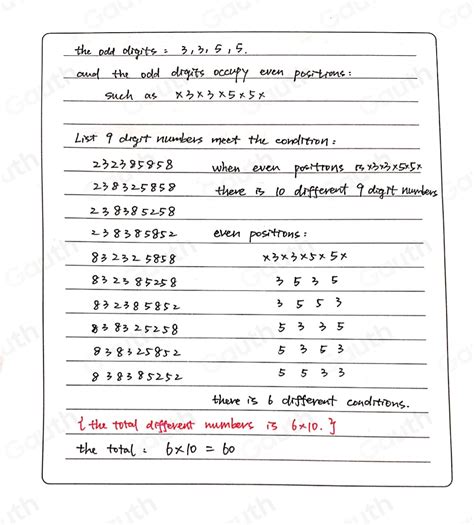 the odd digits : 3, 3, 5, 5.
and the odd digits occupy even positions :
such as x3x3x5x5x
List 9 digit numbers meet the condition :
232385858 when even positions is x3x3x5x5x
238325858 there is 10 different 9 digit numbers
238385258
238385852 even positions :
832325858 x3x3x5x5x
832385258 3 5 3 5
832385852 3 5 5 3
838325258 5 3 3 5
838325852 5 3 5 3
838385252 5 5 3 3
there is 6 different conditions.
{ the total different numbers is 6x10. }
the total : 6x10 = 60
Gauth